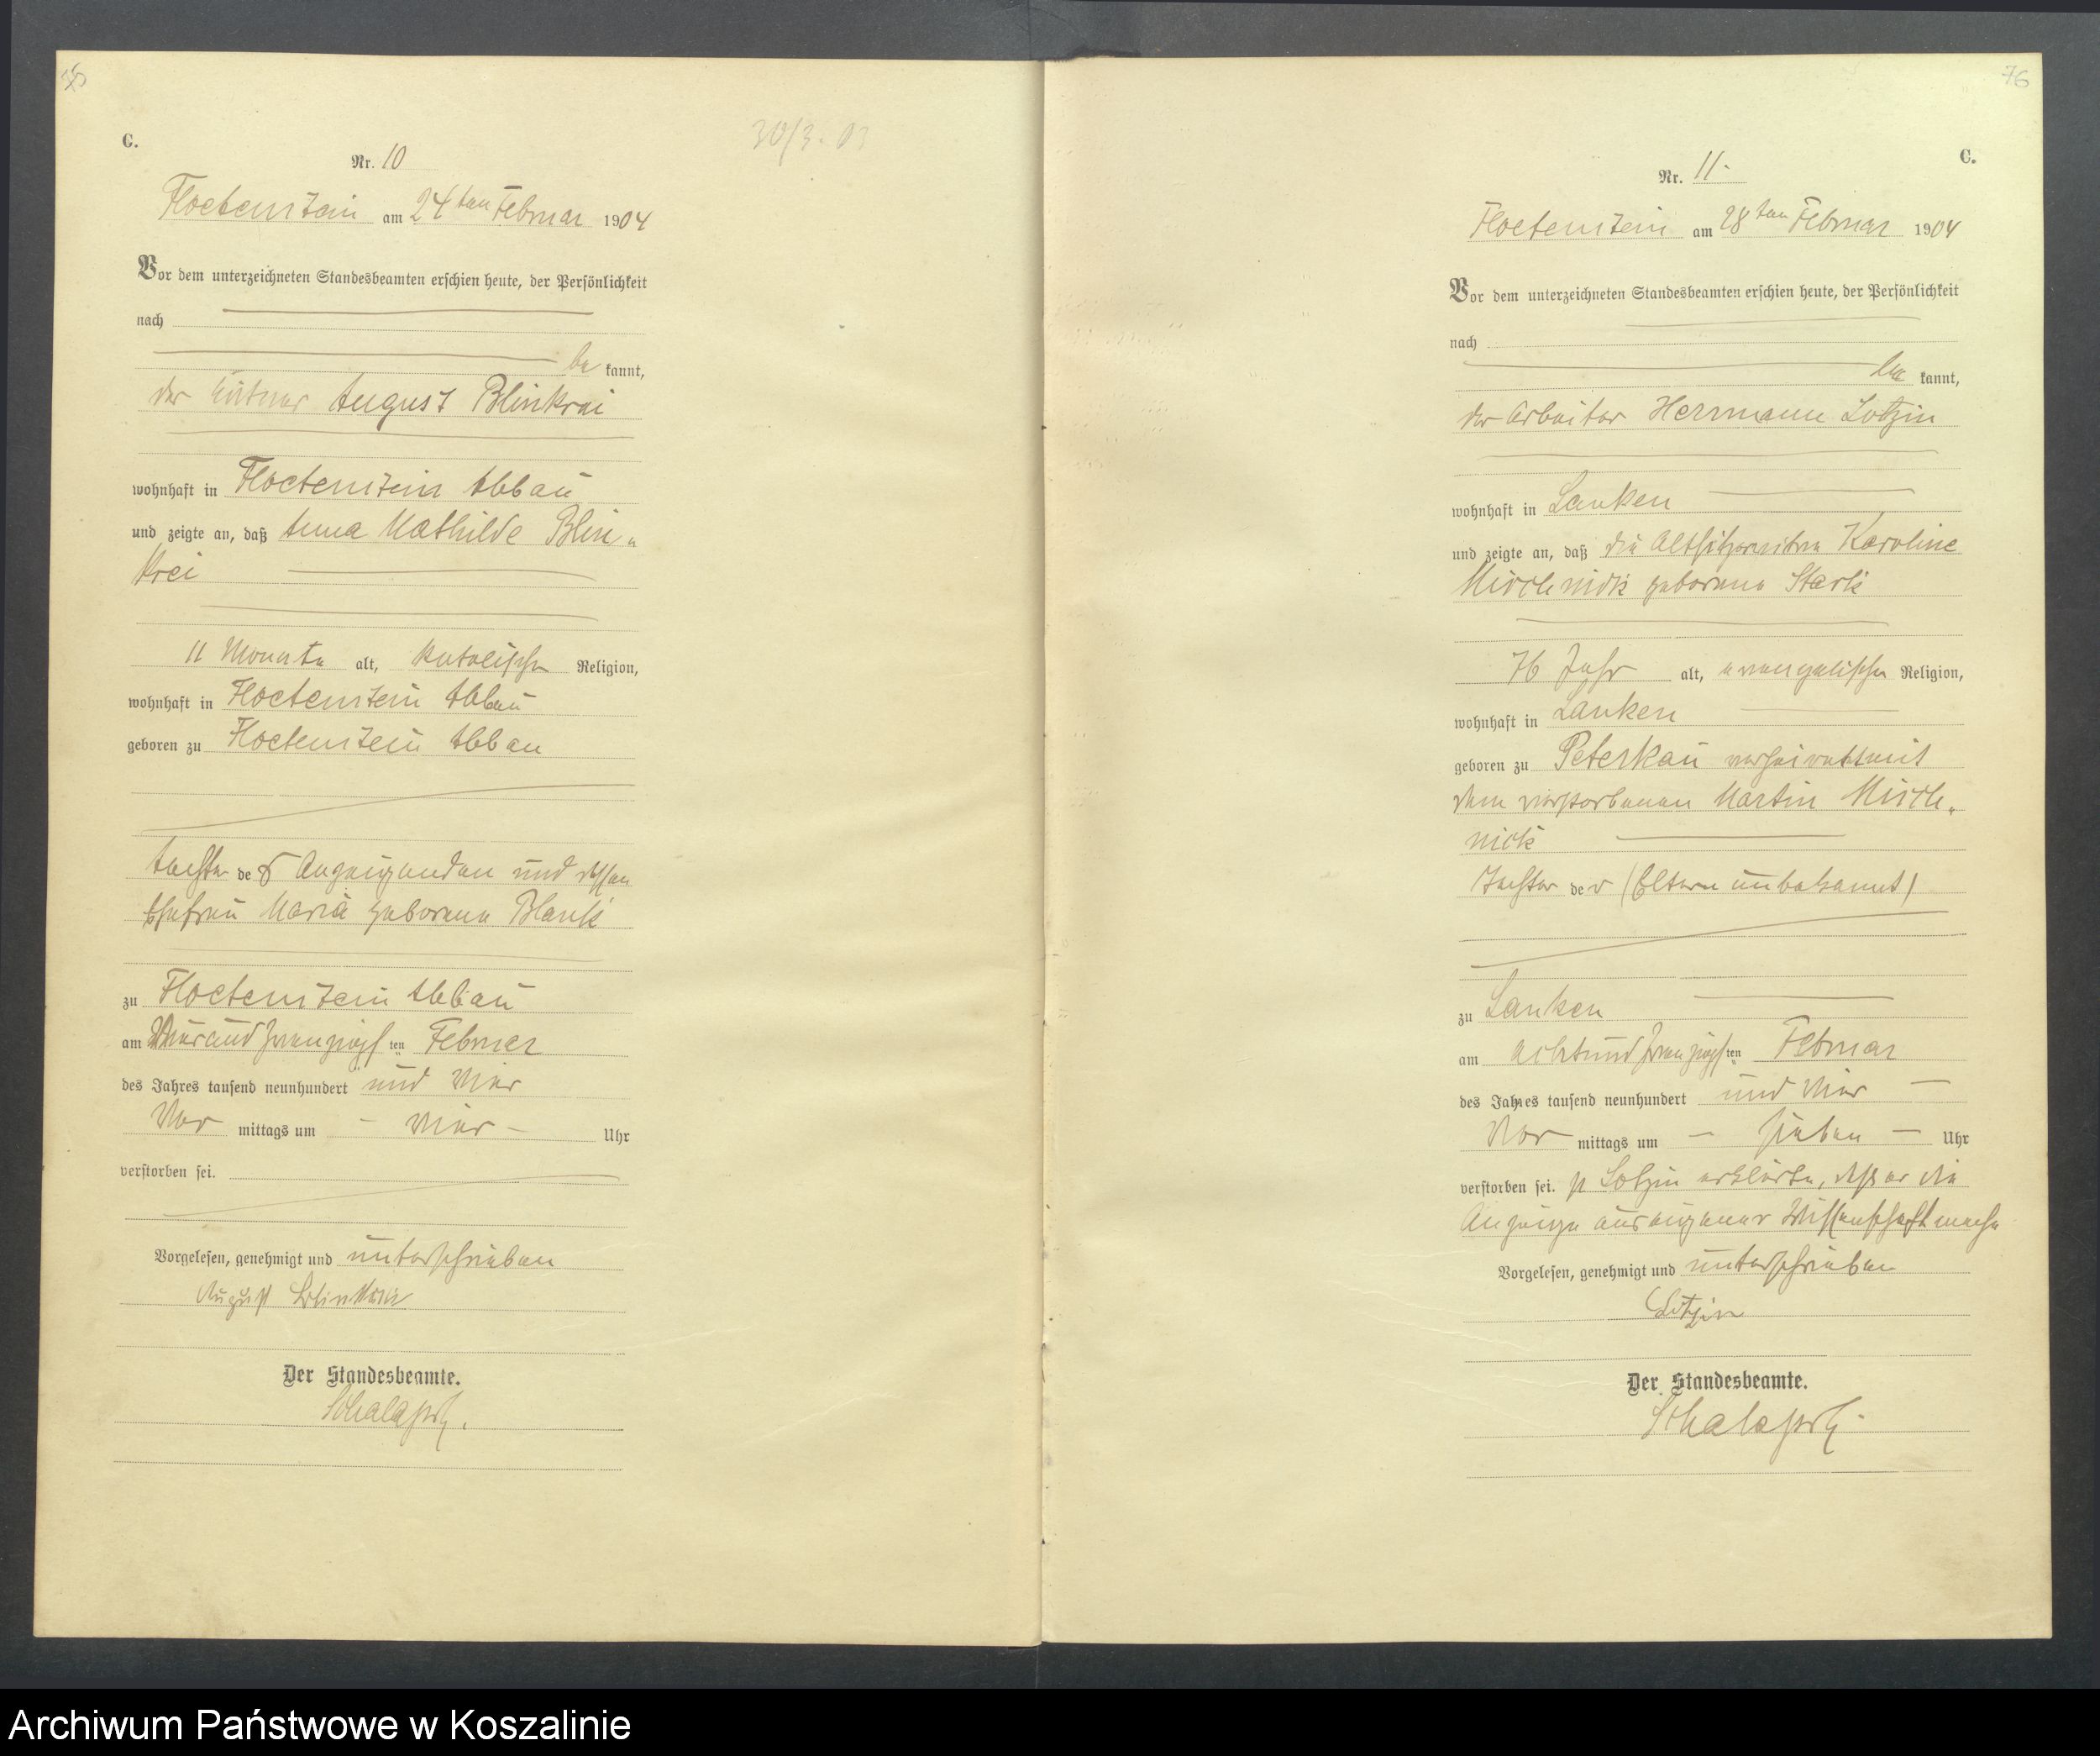 C.
30/3. 03
Nr. 10
Floetenstein am 24ten Februar 1904
Vor dem unterzeichneten Standesbeamten erschien heute, der Persönlichkeit
nach
be kannt,
der August Blinkrei
wohnhaft in Floetenstein Abbau
und zeigte an, daß Anna Mathilde Blin-
krei
11 Monate alt, katolischer Religion,
wohnhaft in Floetenstein Abbau
geboren zu Floetenstein Abbau
Tochter des Anzeigenden und dessen
Ehefrau Maria geborene Blank
zu Floetenstein Abbau
am Vierundzwanzigsten Februar
des Jahres tausend neunhundert und vier
Vor mittags um – vier – Uhr
verstorben sei.
Vorgelesen, genehmigt und unterschrieben
August Blinkrei
Der Standesbeamte.
76
C.
Nr. 11.
Floetenstein am 28ten Februar 1904
Vor dem unterzeichneten Standesbeamten erschien heute, der Persönlichkeit
nach
be kannt,
der Arbeiter Herrmann Lotzin
wohnhaft in Lanken
und zeigte an, daß die Altsitzerwitwe Karoline
Mirchnick geborene Stark
76 Jahr alt, evangelischer Religion,
wohnhaft in Lanken
geboren zu Peterkau verheirathet mit
dem verstorbenen Martin Mirch-
nick
Tochter der (Eltern unbekannt)
zu Lanken
am achtundzwanzigsten Februar
des Jahres tausend neunhundert und vier –
Vor mittags um – sieben – Uhr
verstorben sei. p Lotzin erklärte, daß er die
Anzeige aus eigener Wissenschaft mache
Vorgelesen, genehmigt und unterschrieben
Lotzin
Der Standesbeamte.
Archiwum Państwowe w Koszalinie